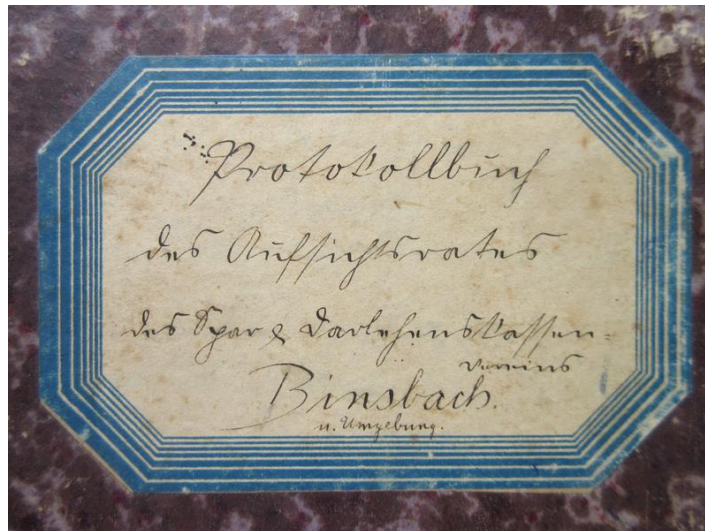 Protokollbuch
des Aufsichtsrates
des Spar & Darlehenskassen-
vereins
Binsbach.
u. Umgebung.